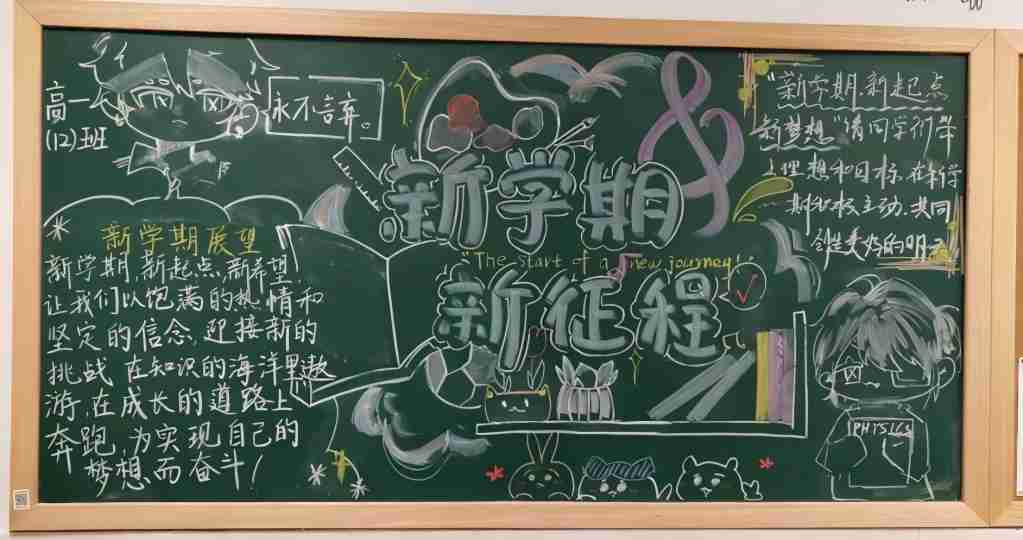 高一
(12)班
永不言弃。
新学期
"The start of a new journey!"
新征程
新学期展望
新学期,新起点,新希望,
让我们以饱满的热情和
坚定的信念,迎接新的
挑战,在知识的海洋里遨
游,在成长的道路上
奔跑,为实现自己的
梦想而奋斗!
"新学期,新起点
新梦想"请同学们带
上理想和目标,在新学
期积极主动,共同
创造美好的明天
PHYSICS